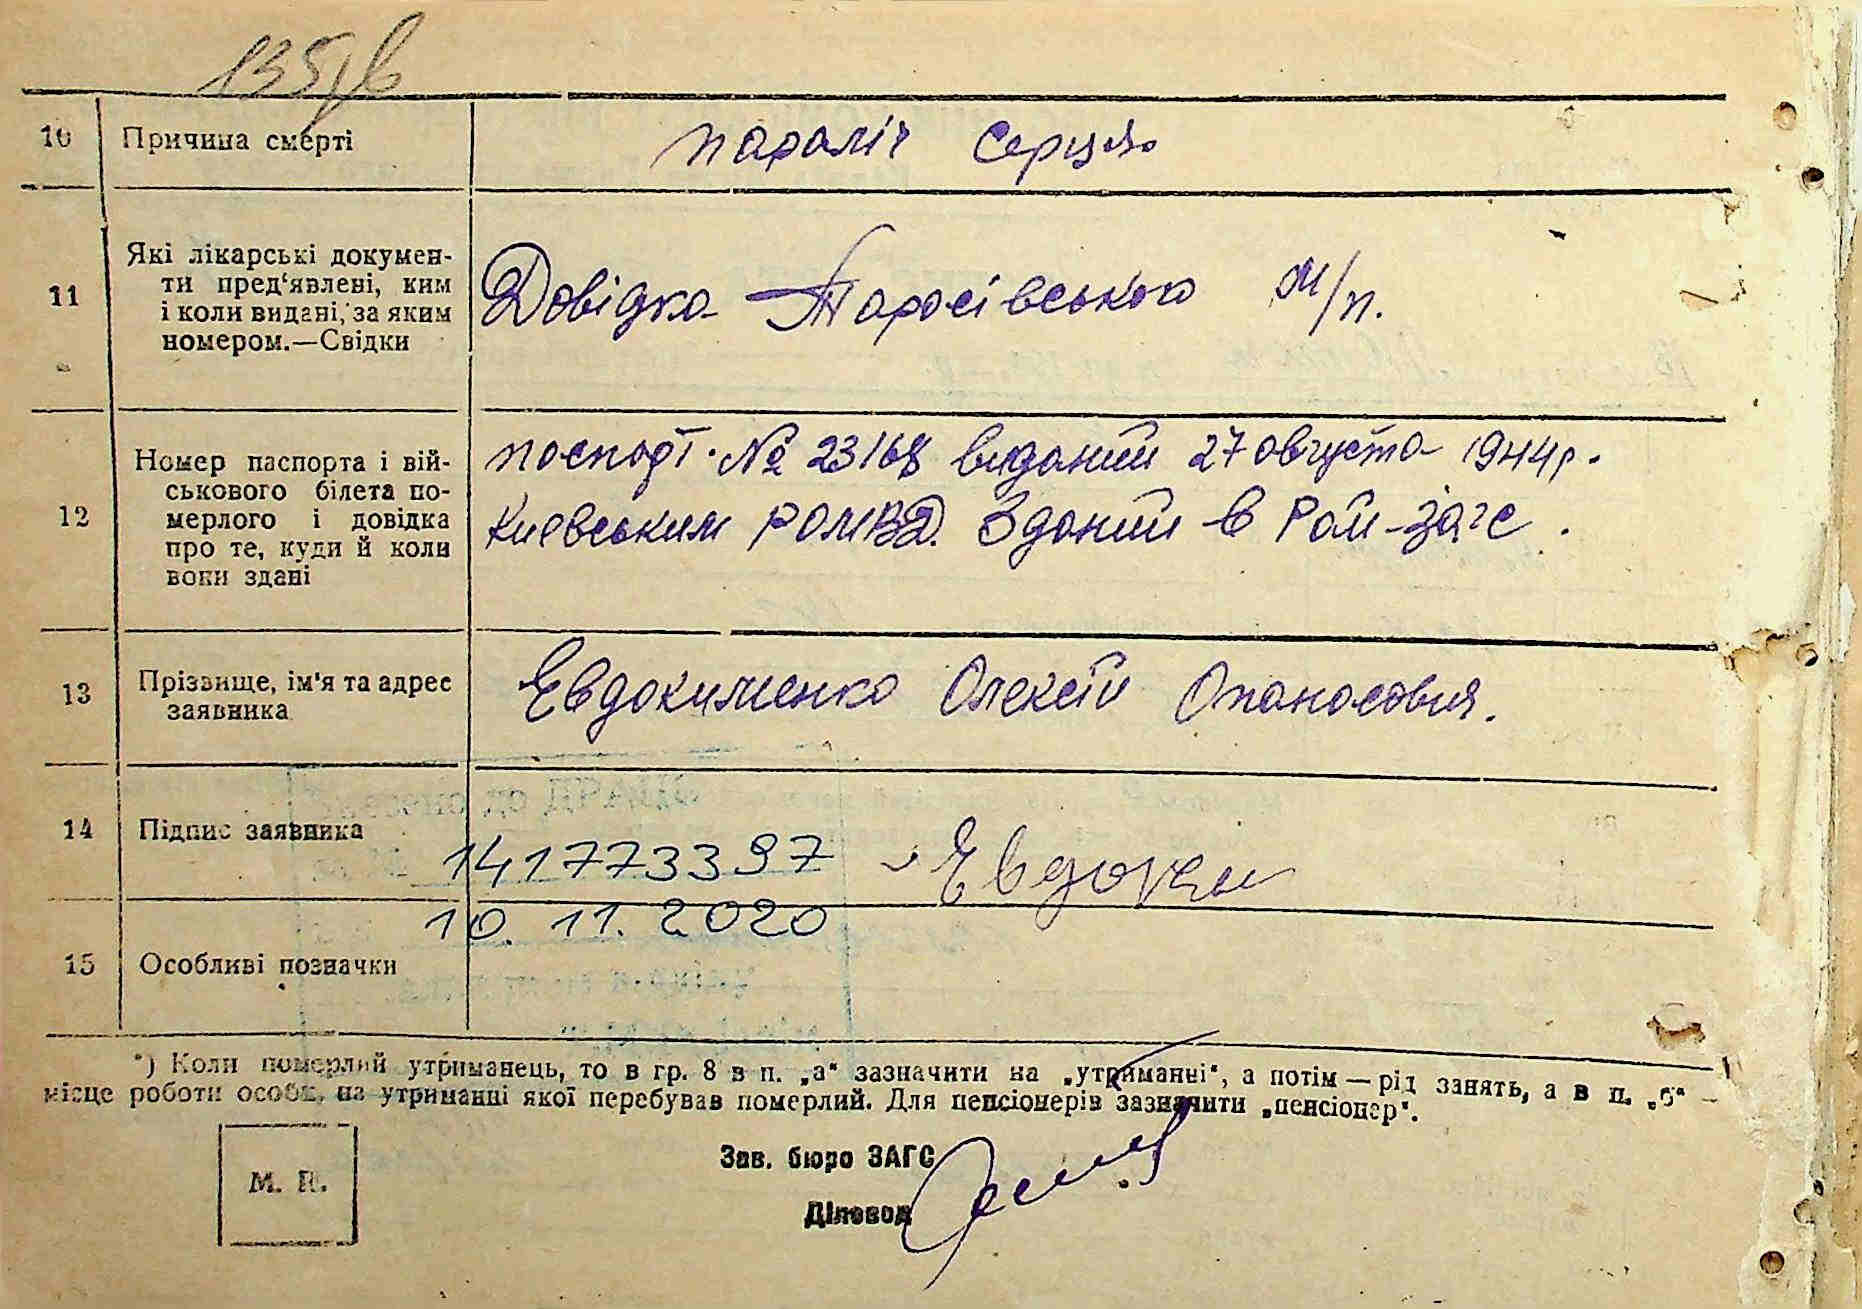 135
10 Причина смерті параліч серця.
11 Які лікарські докумен-
ти пред'явлені, ким
і коли видані, за яким
номером.—Свідки
Довідка Тарасівського м/п.
12 Номер паспорта і вій-
ськового білета по-
мерлого і довідка
про те, куди й коли
вони здані
паспорт. № 23168 виданий 27 августа 1944р.
Киевським РОМВД. Зданий в Рай-загс.
13 Прізвище, ім'я та адрес
заявника
Евдокименко Олексій Опанасович.
14 Підпис заявника
141773397 Евдоким
10.11.2020
15 Особливі позначки
*) Коли померлий утриманець, то в гр. 8 в п. „а“ зазначити на „утриманні“, а потім — рід занять, а в п. „б“ —
місце роботи особи, на утриманні якої перебував померлий. Для пенсіонерів зазначити „пенсіонер“.
Зав. бюро ЗАГС
М. П.
Діловод